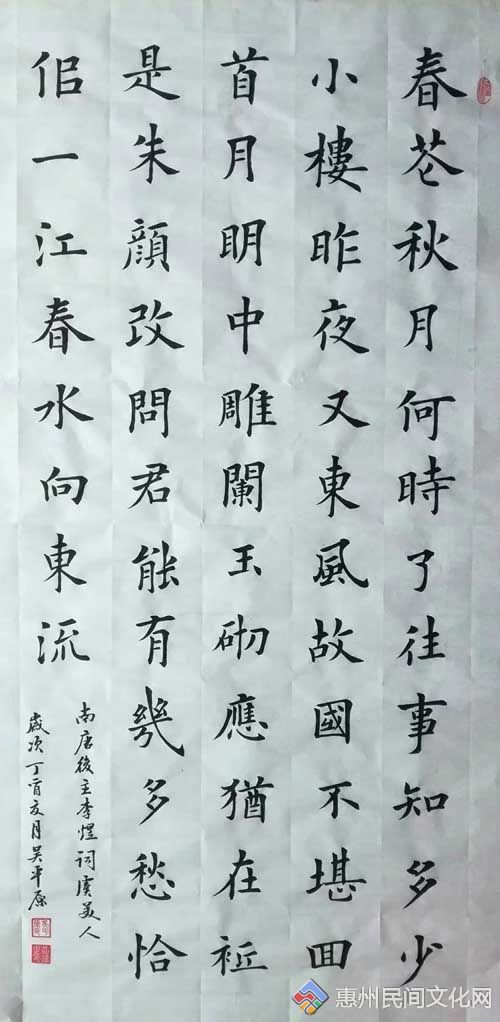 春花秋月何時了往事知多少
小樓昨夜又東風故國不堪回
首月明中雕闌玉砌應猶在祗
是朱顏改問君能有幾多愁恰
佀一江春水向東流
南唐後主李煜詞虞美人
歲次丁酉友月吴平原
惠州民间文化网